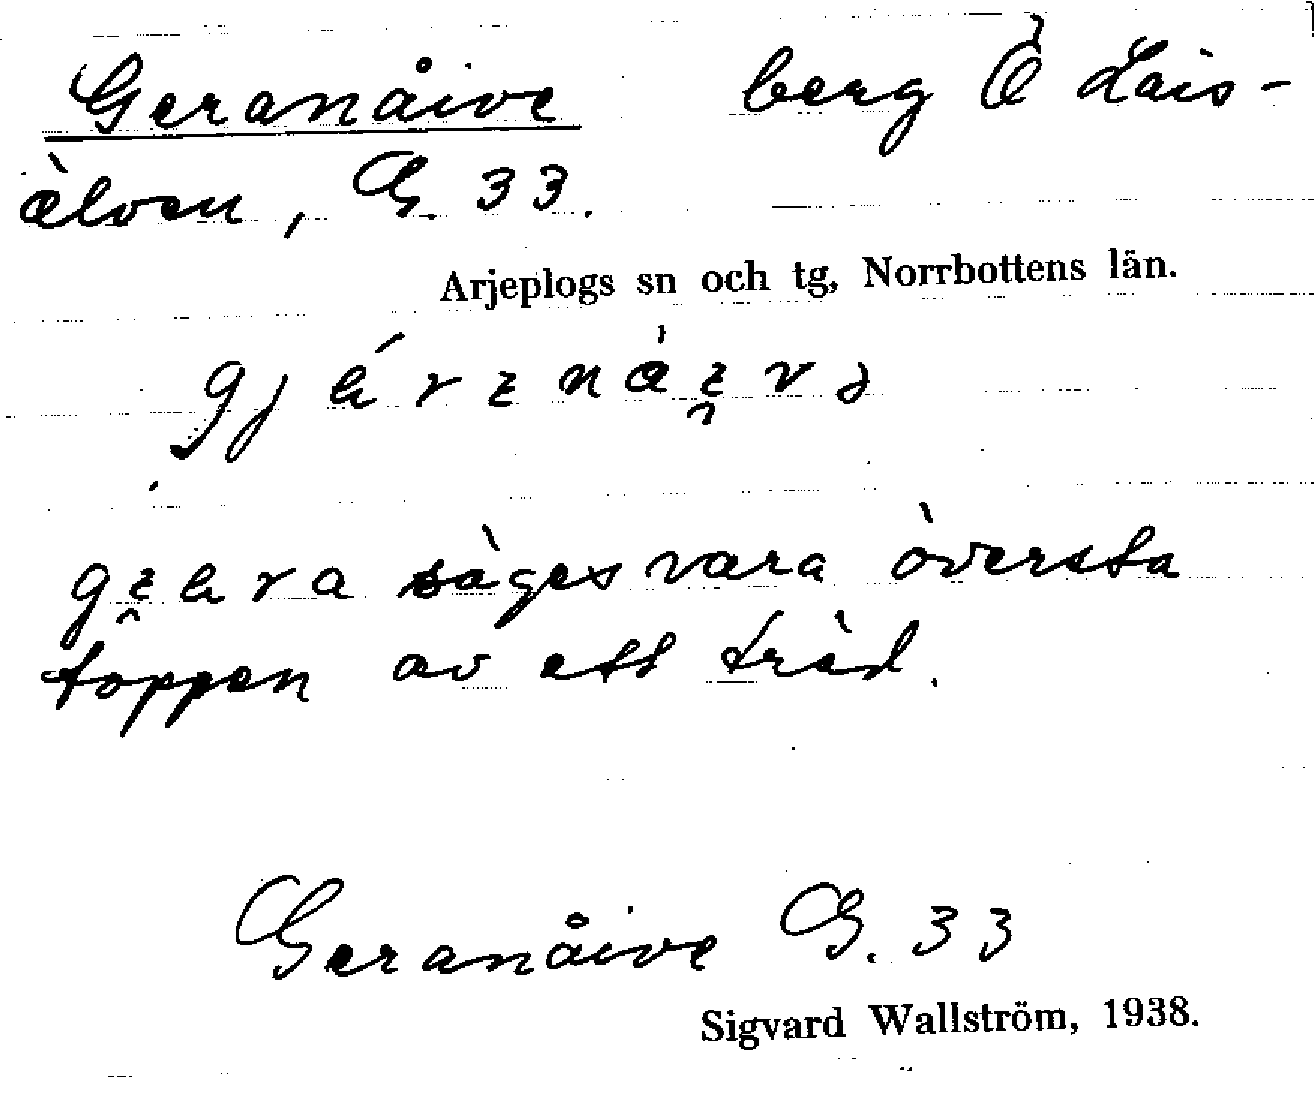 Geranåive berg Ö Lais-
älven, G. 33.
Arjeplogs sn och tg, Norrbottens län.
säges vara översta
toppen av ett träd.
Geranåive G. 33
Sigvard Wallström, 1938.